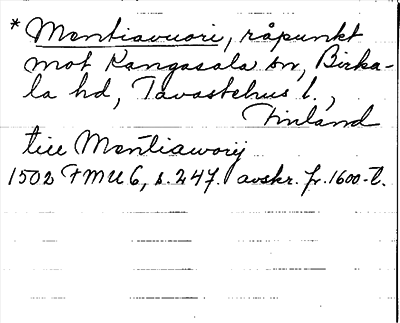 * Mentiavuori, råpunkt
mot Kangasala sn, Birka-
la hd, Tavastehus l.,
Finland
till Mentiaworÿ
1502 FMU 6, s. 247. avskr. fr. 1600-t.